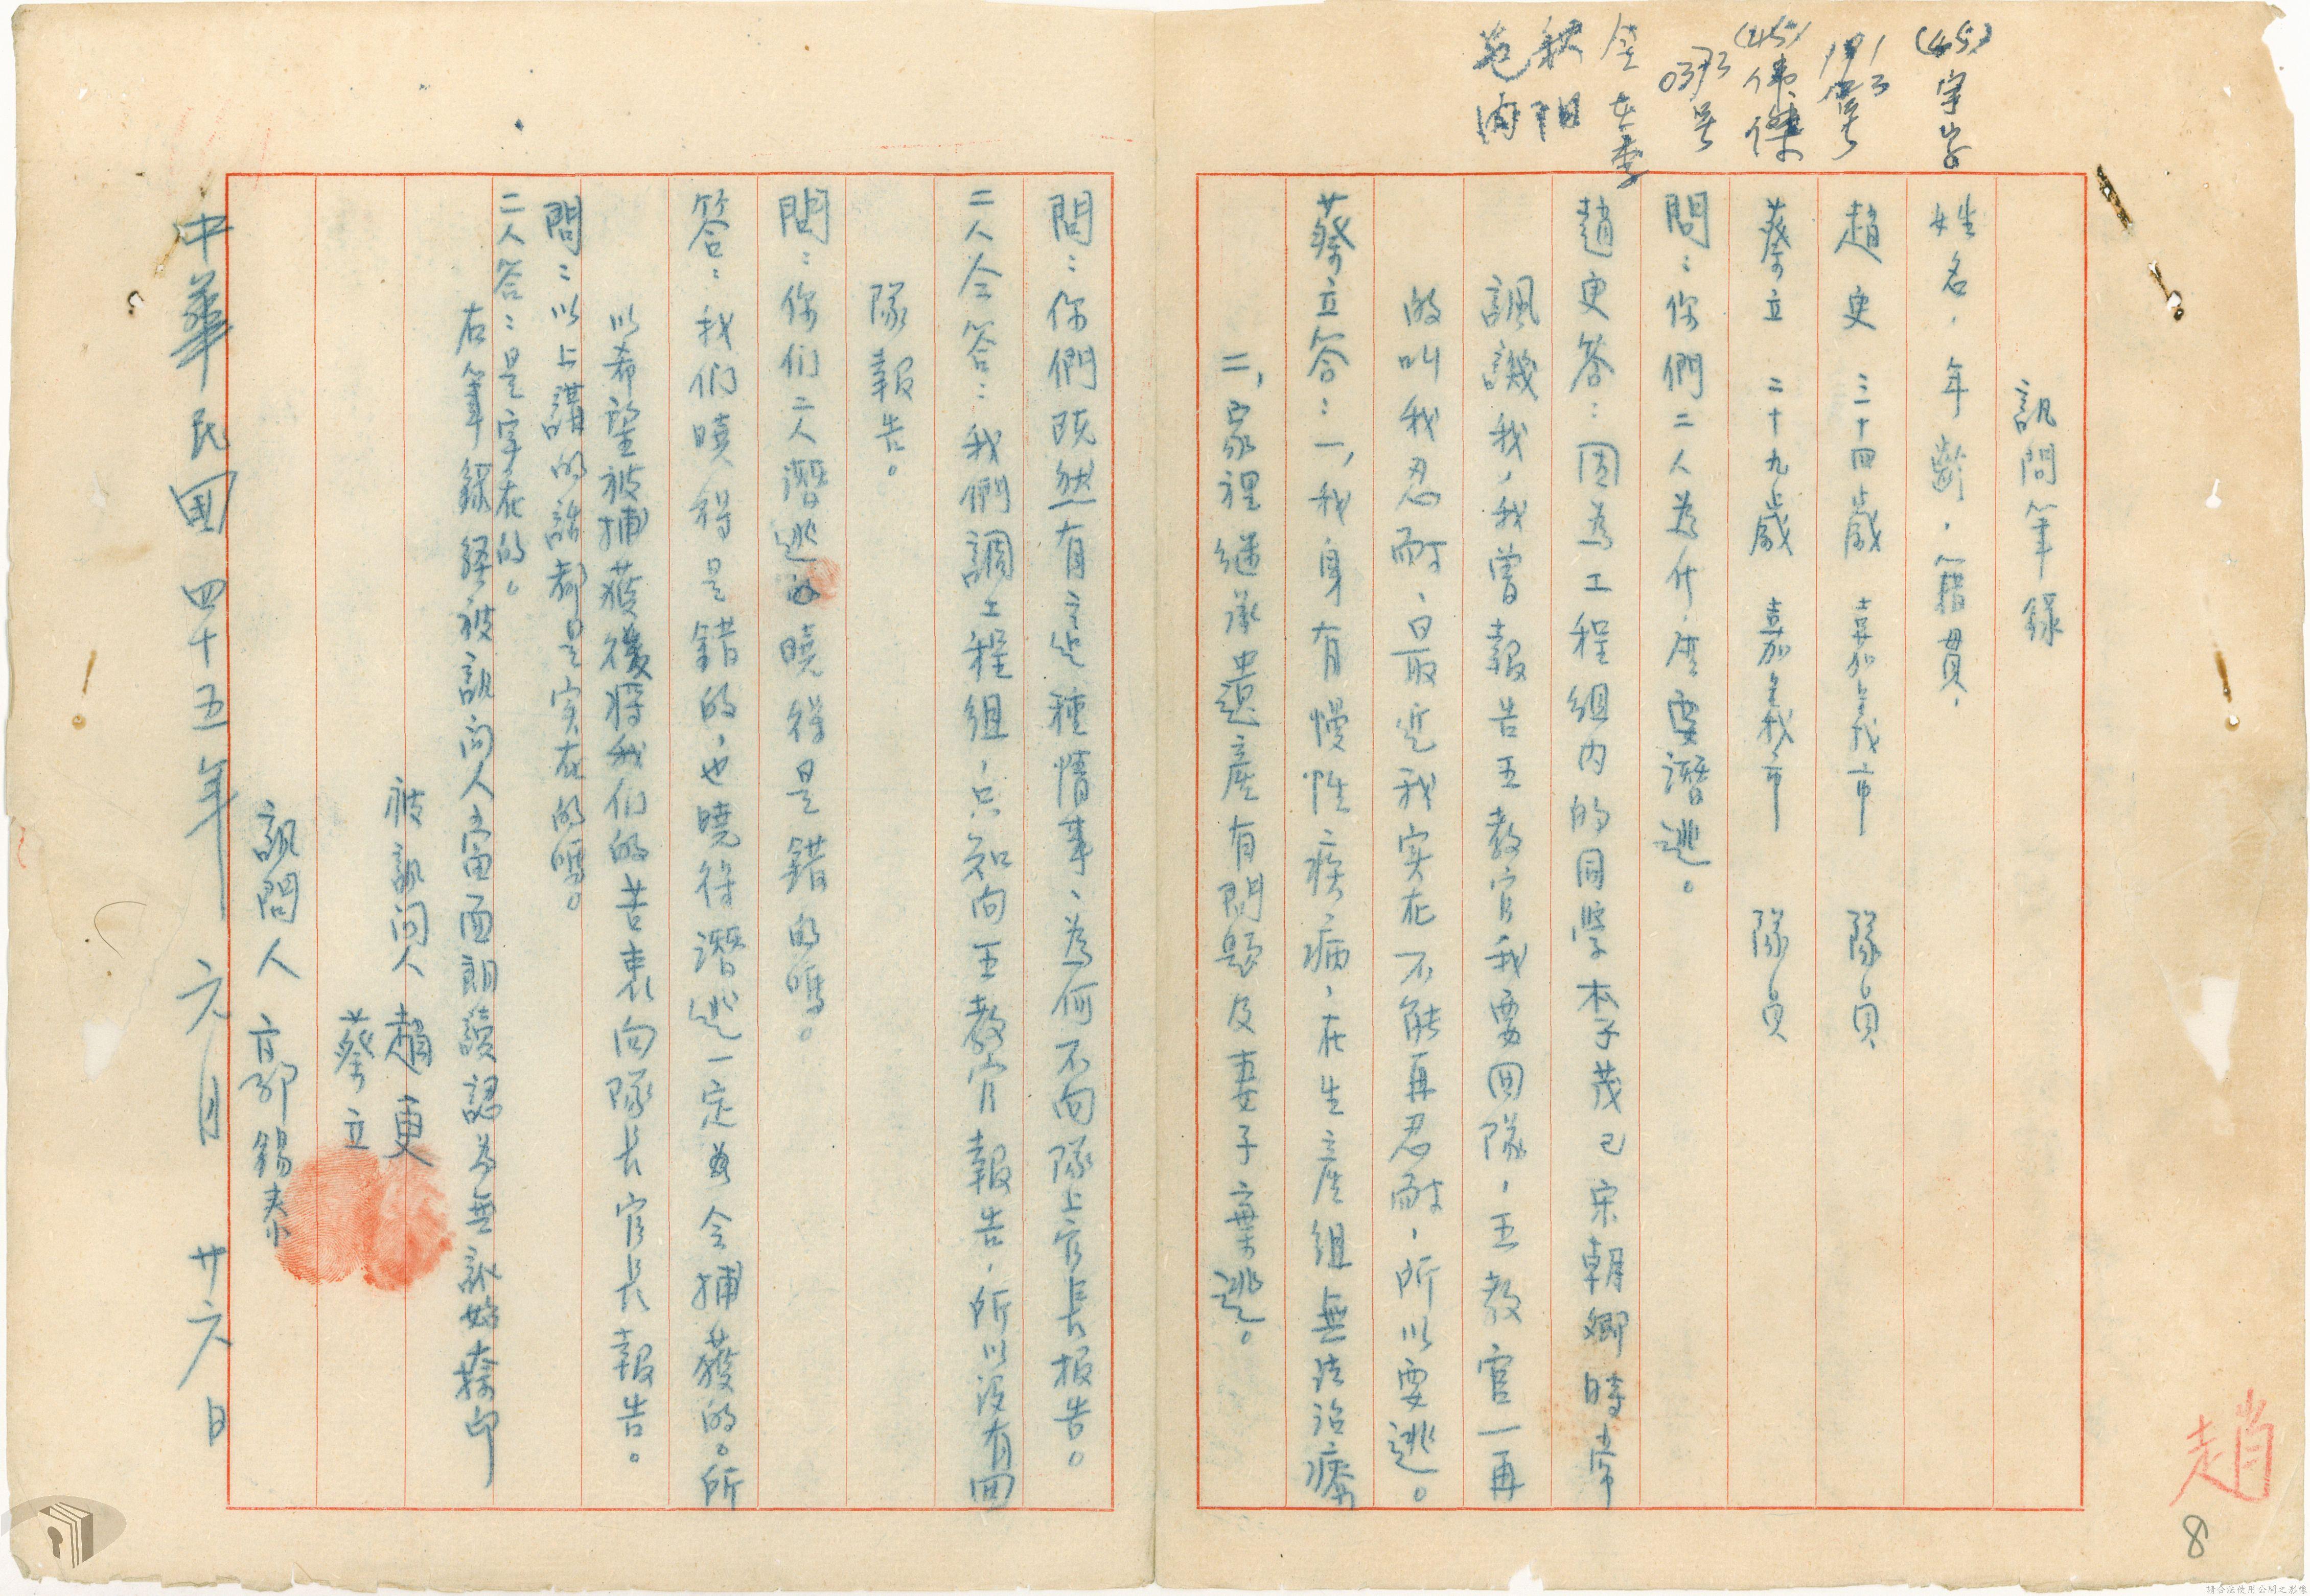 訊問筆錄
姓名，年齡，籍貫，
趙更 三十四歲 嘉義市 隊員
蔡立 二十九歲 嘉義市 隊員
問：你們二人為什麼要潛逃。
趙更答：因為工程組内的同學李茂己宋朝卿時常
諷譏我，我曾報告王教官我要回隊，王教官一再
的叫我忍耐，最近我实在不能再忍耐，所以要逃。
蔡立答：一，我身有慢性疾病，在生産組無法治療
二，家裡继承遺産有問題及妻子棄逃。
問：你們既然有這種情事、為何不向隊上官長报告。
二人仝答：我們調工程組，只知向王教官報告，所以沒有回
隊報告。
問：你们二人潛逃曉得是錯的嗎。
答：我们曉得是錯的，也曉得潛逃一定會捕獲的。所
以希望被捕獲後將我们的苦衷向隊長官長報告。
問：以上講的話都是实在的嗎。
二人答：是实在的。
右筆錄經被訊问人當面朗讀認為無訛始捺印
被訊问人 趙更
蔡立
訊問人 郭錫泰
中華民國四十五年 六月 廿六日
(45)
(45)
偉傑
趙
8
請合法使用公開之影像